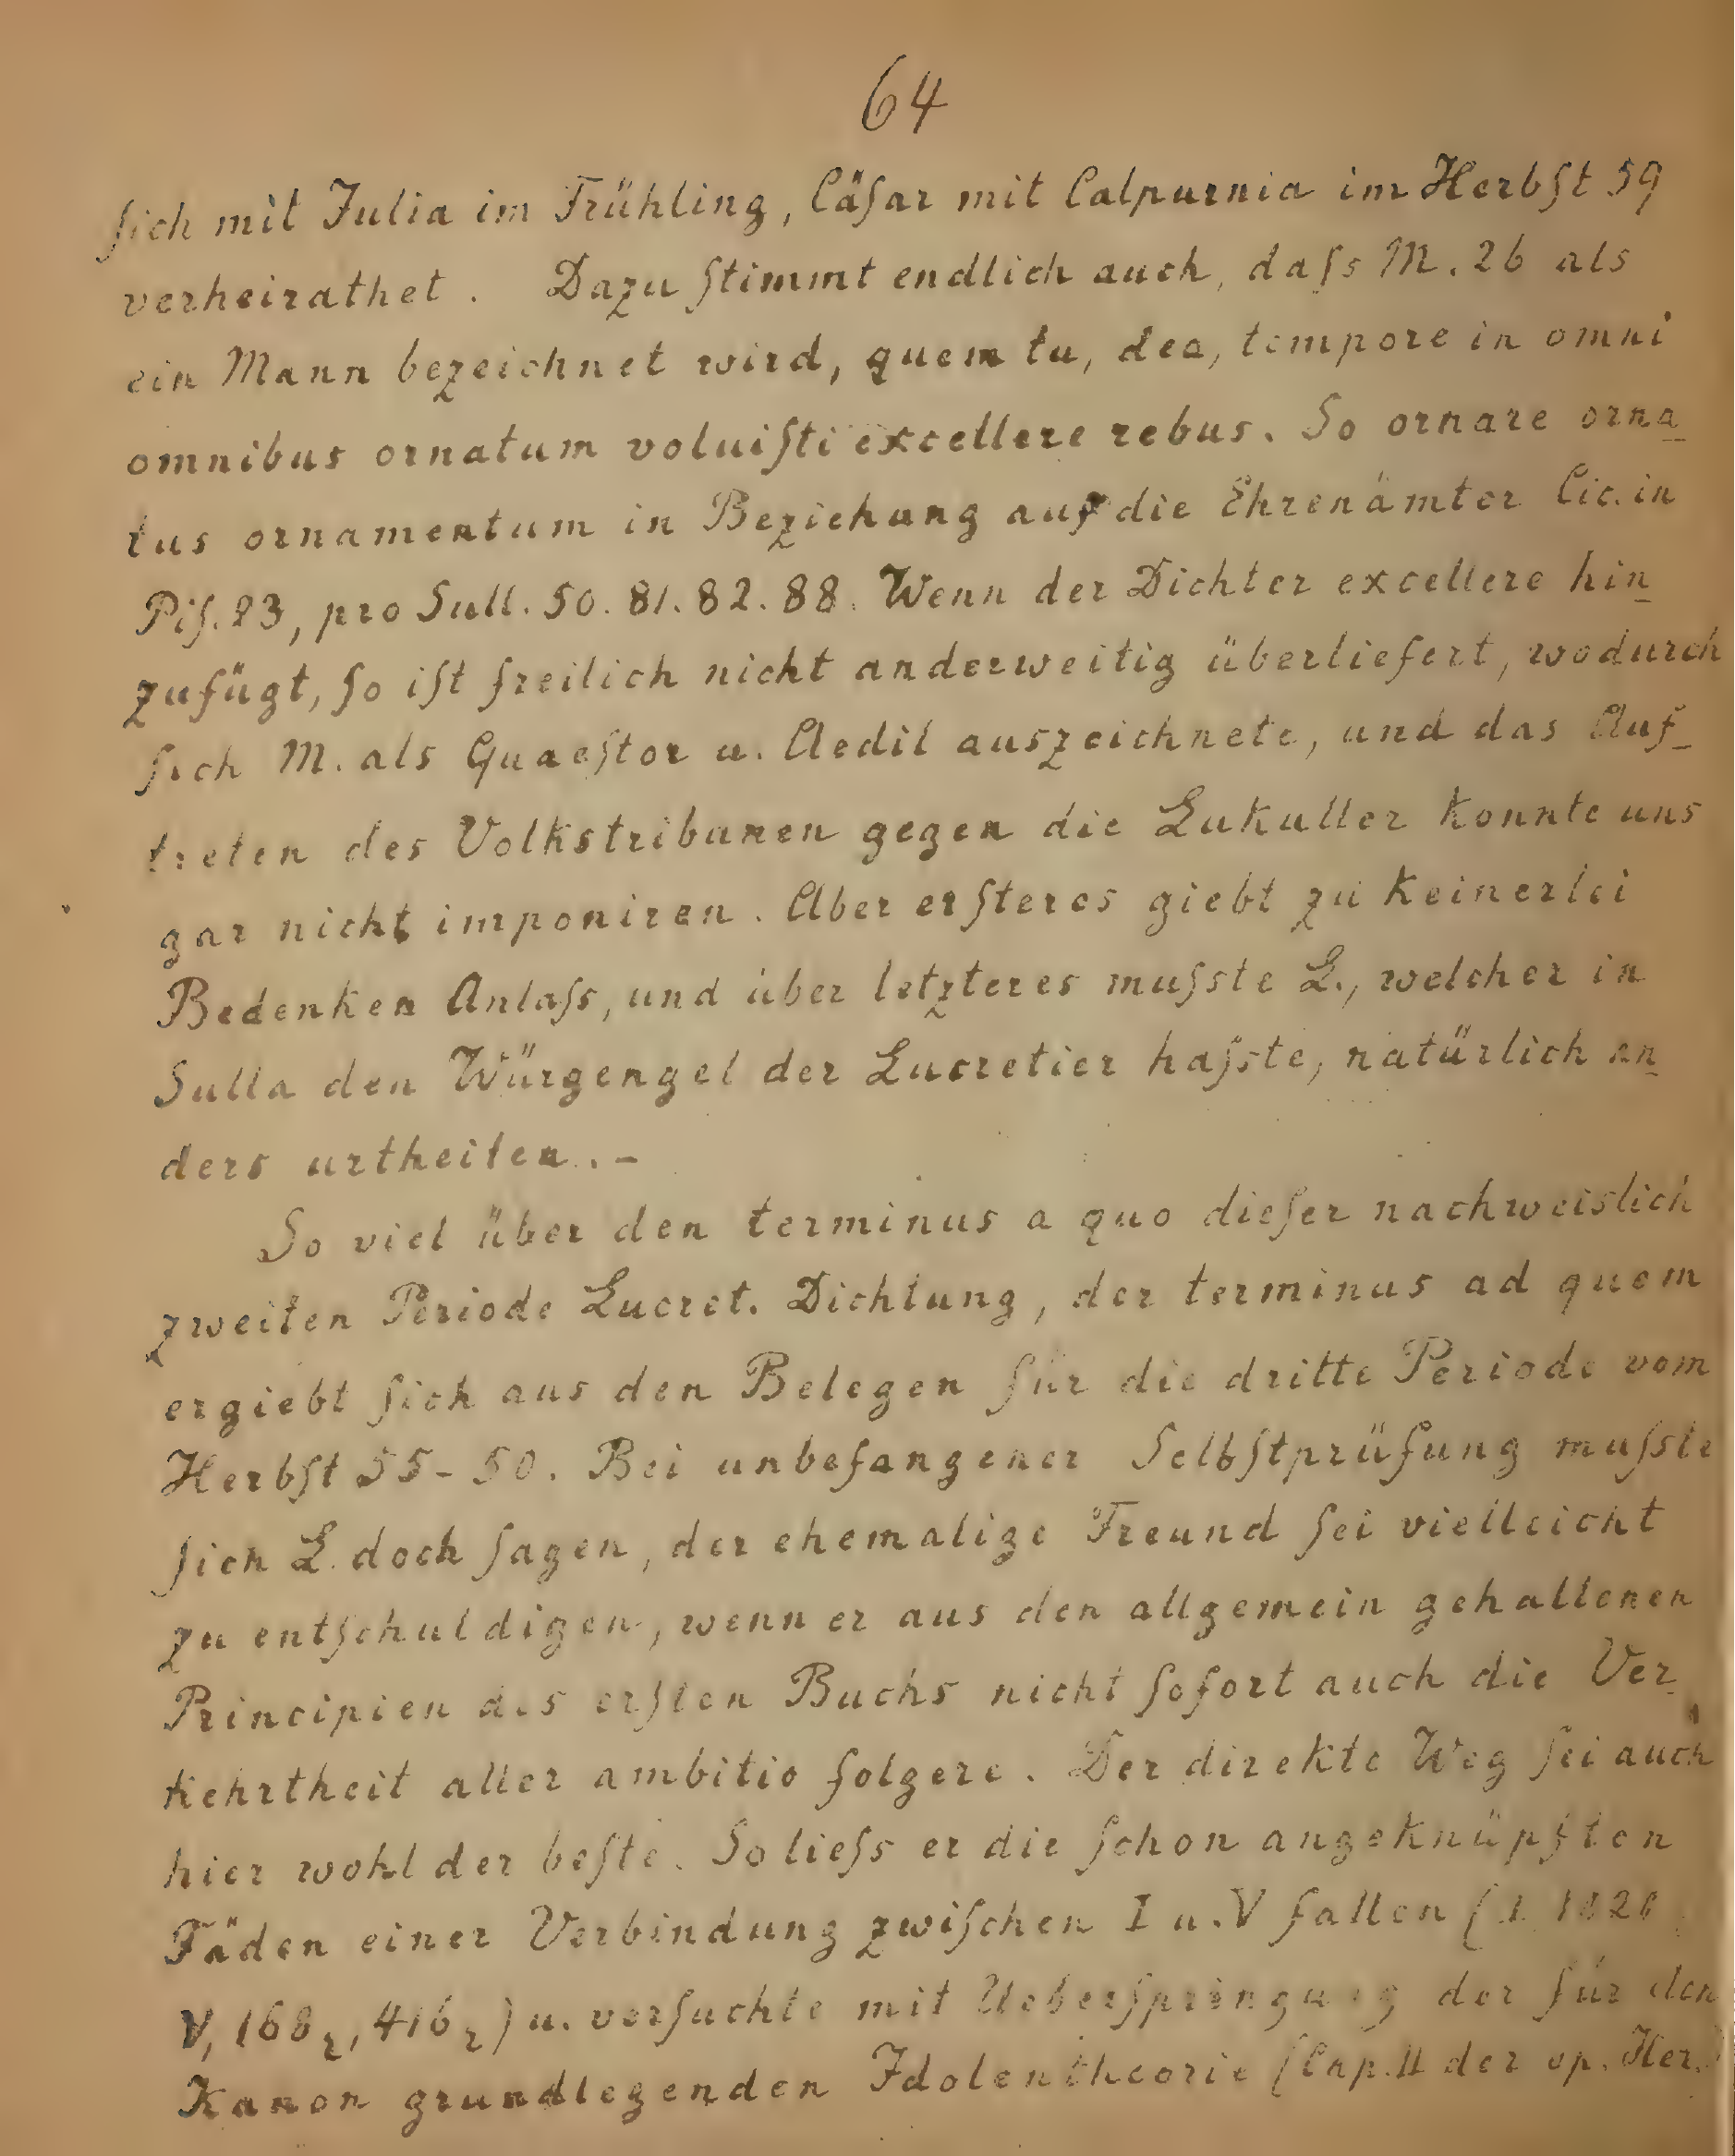 64
ſich mit Julia im Frühling, Cäſar mit Calpurnia im Herbſt 59
verheirathet. Dazu ſtimmt endlich auch, daſs M. 26 als
ein Mann bezeichnet wird, quem tu, dea, tempore in omni
omnibus ornatum voluiſti excellere rebus. So ornare orna_
tus ornamentum in Beziehung auf die Ehrenämter Cic. in
Piſ. 23, pro Sull. 50. 81. 82. 88. Wenn der Dichter excellere hin_
zufügt, ſo iſt freilich nicht anderweitig überliefert, wodurch
ſich M. als Quaeſtor u. Aedil auszeichnete, und das Auf_
treten des Volkstribunen gegen die Lukuller konnte uns
gar nicht imponiren. Aber erſteres giebt zu keinerlei
Bedenken Anlaſs, und über letzteres muſste L., welcher in
Sulla den Würgengel der Lucretier haſste, natürlich an_
ders urtheilen. –
So viel über den terminus a quo dieſer nachweislich
zweiten Periode Lucret. Dichtung, der terminus ad quem
ergiebt ſich aus den Belegen für die dritte Periode vom
Herbſt 55 - 50. Bei unbefangener Selbſtprüfung muſste
ſich L. doch ſagen, der ehemalige Freund ſei vielleicht
zu entſchuldigen, wenn er aus den allgemein gehaltenen
Principien des erſten Buchs nicht ſofort auch die Ver_
kehrtheit aller ambitio folgere. Der direkte Weg ſei auch
hier wohl der beſte. So lieſs er die ſchon angeknüpften
Fäden einer Verbindung zwiſchen I u. V fallen (I
V, 168₂, 416₂) u. verſuchte mit Ueberſpringung der für den
Kanon grundlegenden Idolentheorie (Cap. II der ep. Her.)